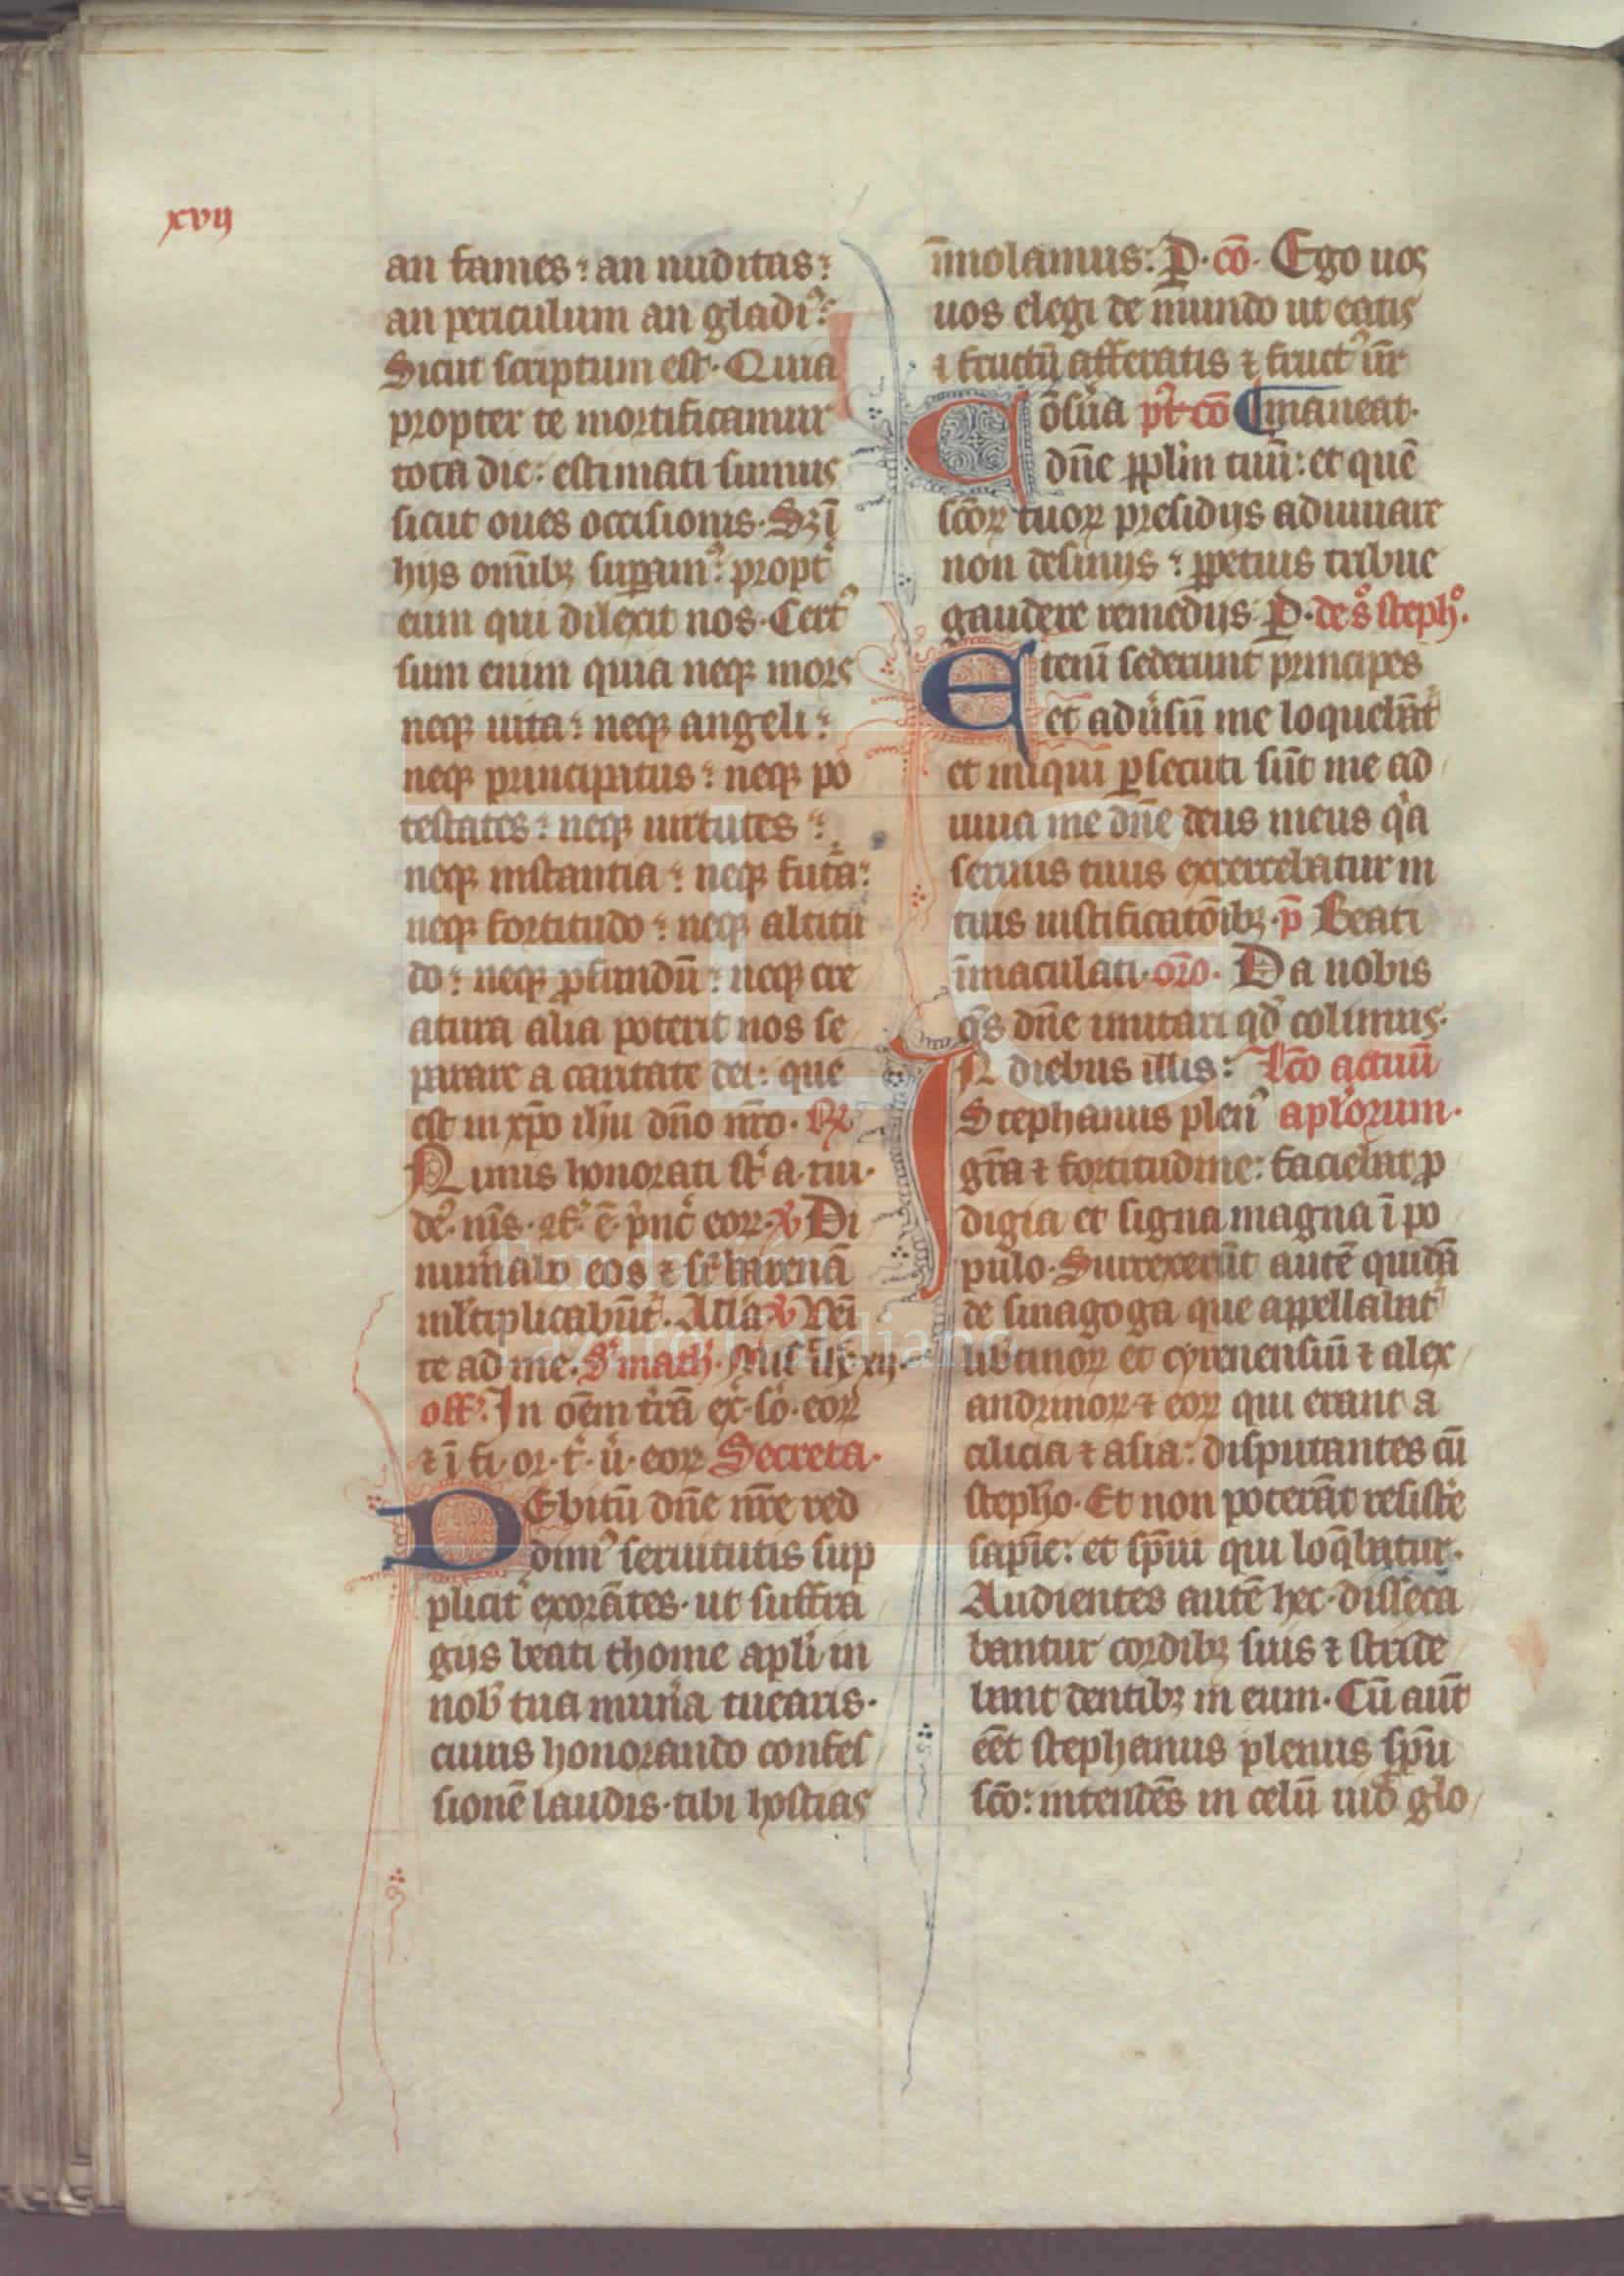 xvij
an fames: an nuditas:
an periculum an gladi᷒:
Sicut scriptum est. Quia
propter te mortificamur
tota die: estimati sumus
sicut oues occisionis. Sꝫ ī
hijs om̄ibꝫ suꝑam᷒: propt̉
eum qui dilexit nos. Cert᷒
sum enim quia neqꝫ mors
neqꝫ uita: neqꝫ angeli:
neqꝫ principatus: neqꝫ po
testates: neqꝫ uirtutes:
neqꝫ instantia: neqꝫ futᷓa:
neqꝫ fortitudo: neqꝫ altitu
do: neqꝫ ꝓfundū: neqꝫ cre
atura alia poterit nos se
parare a caritate dei: que
est in xp̄o ih̄u dn̄o nr̄o. R͛
Nimis honorati st̄ a. tui.
de᷒. nīs. ꝯf. ē. pⁱnc̄ eoꝝ. v̉ Di
numᷓabo eos ⁊ sᵘ harenā
ml̉tiplicabūt᷑. Alla v̉ Veī
te ad me. Sᵐ math.
off̉. In oēm tr̄ā ex̉. so. eoꝝ
⁊ ī fi. or. t̉. u̇. eoꝝ Secreta.
DEbitū dn̄e nr̄e red
dim᷒ seruitutis sup
plicit̉ exorātes. ut suffra
gijs beati thome apl̄i in
nob̄ tua mun̉a tuearis.
cuius honorando confes
sionē laudis. tibi hostias
īmolamus: P̄. cō. Ego uos
uos elegi de mundo ut eatis
⁊ fructū afferatis ⁊ fruct᷒ ur̄
Cōsủa pt̉ cō maneat.
dn̄e ppl̄m tuū: et quē
sc̄oꝝ tuoꝝ presidijs adiuuare
non desinijs: ꝑpetuis tribue
gaudere remedijs P̄. de sº stephº.
Eteni̅ sederunt principes
et adủsū me loquebāt᷑
et iniqui ꝑsecuti sūt me ad
iuua me dn̄e deus meus qᷓa
seruus tuus exercebatur in
tuis iustificatōibꝫ. p̄ Beati
īmaculati. or̄o. Da nobis
qᷓs dn̄e imitari qd̄ colimus.
IN diebus illis: Lc̄o actuū
Stephanus plen᷒ apl̄orum.
gr̄a ⁊ fortitudine: faciebat ꝓ
digia et signa magna ī po
pulo. Surrexerūt autē quidā
de sinagoga que appellabat᷑
lib̉tinoꝝ et cyrenensiū ⁊ alex
andrinoꝝ ⁊ eoꝝ qui erant a
cilicia ⁊ asia: disputantes cū
stepho. Et non poterāt resist̉e
sapīe: et sp̄ui qui loq̄batur.
Audientes autē hec. disseca
bantur cordibꝫ suis ⁊ stride
bant dentibꝫ in eum. Cū aūt
eēt stephanus plenus sp̄u
sc̄o: intendēs in celū uid̄ glo
Fundación
Lázaro Galdiano
FLG